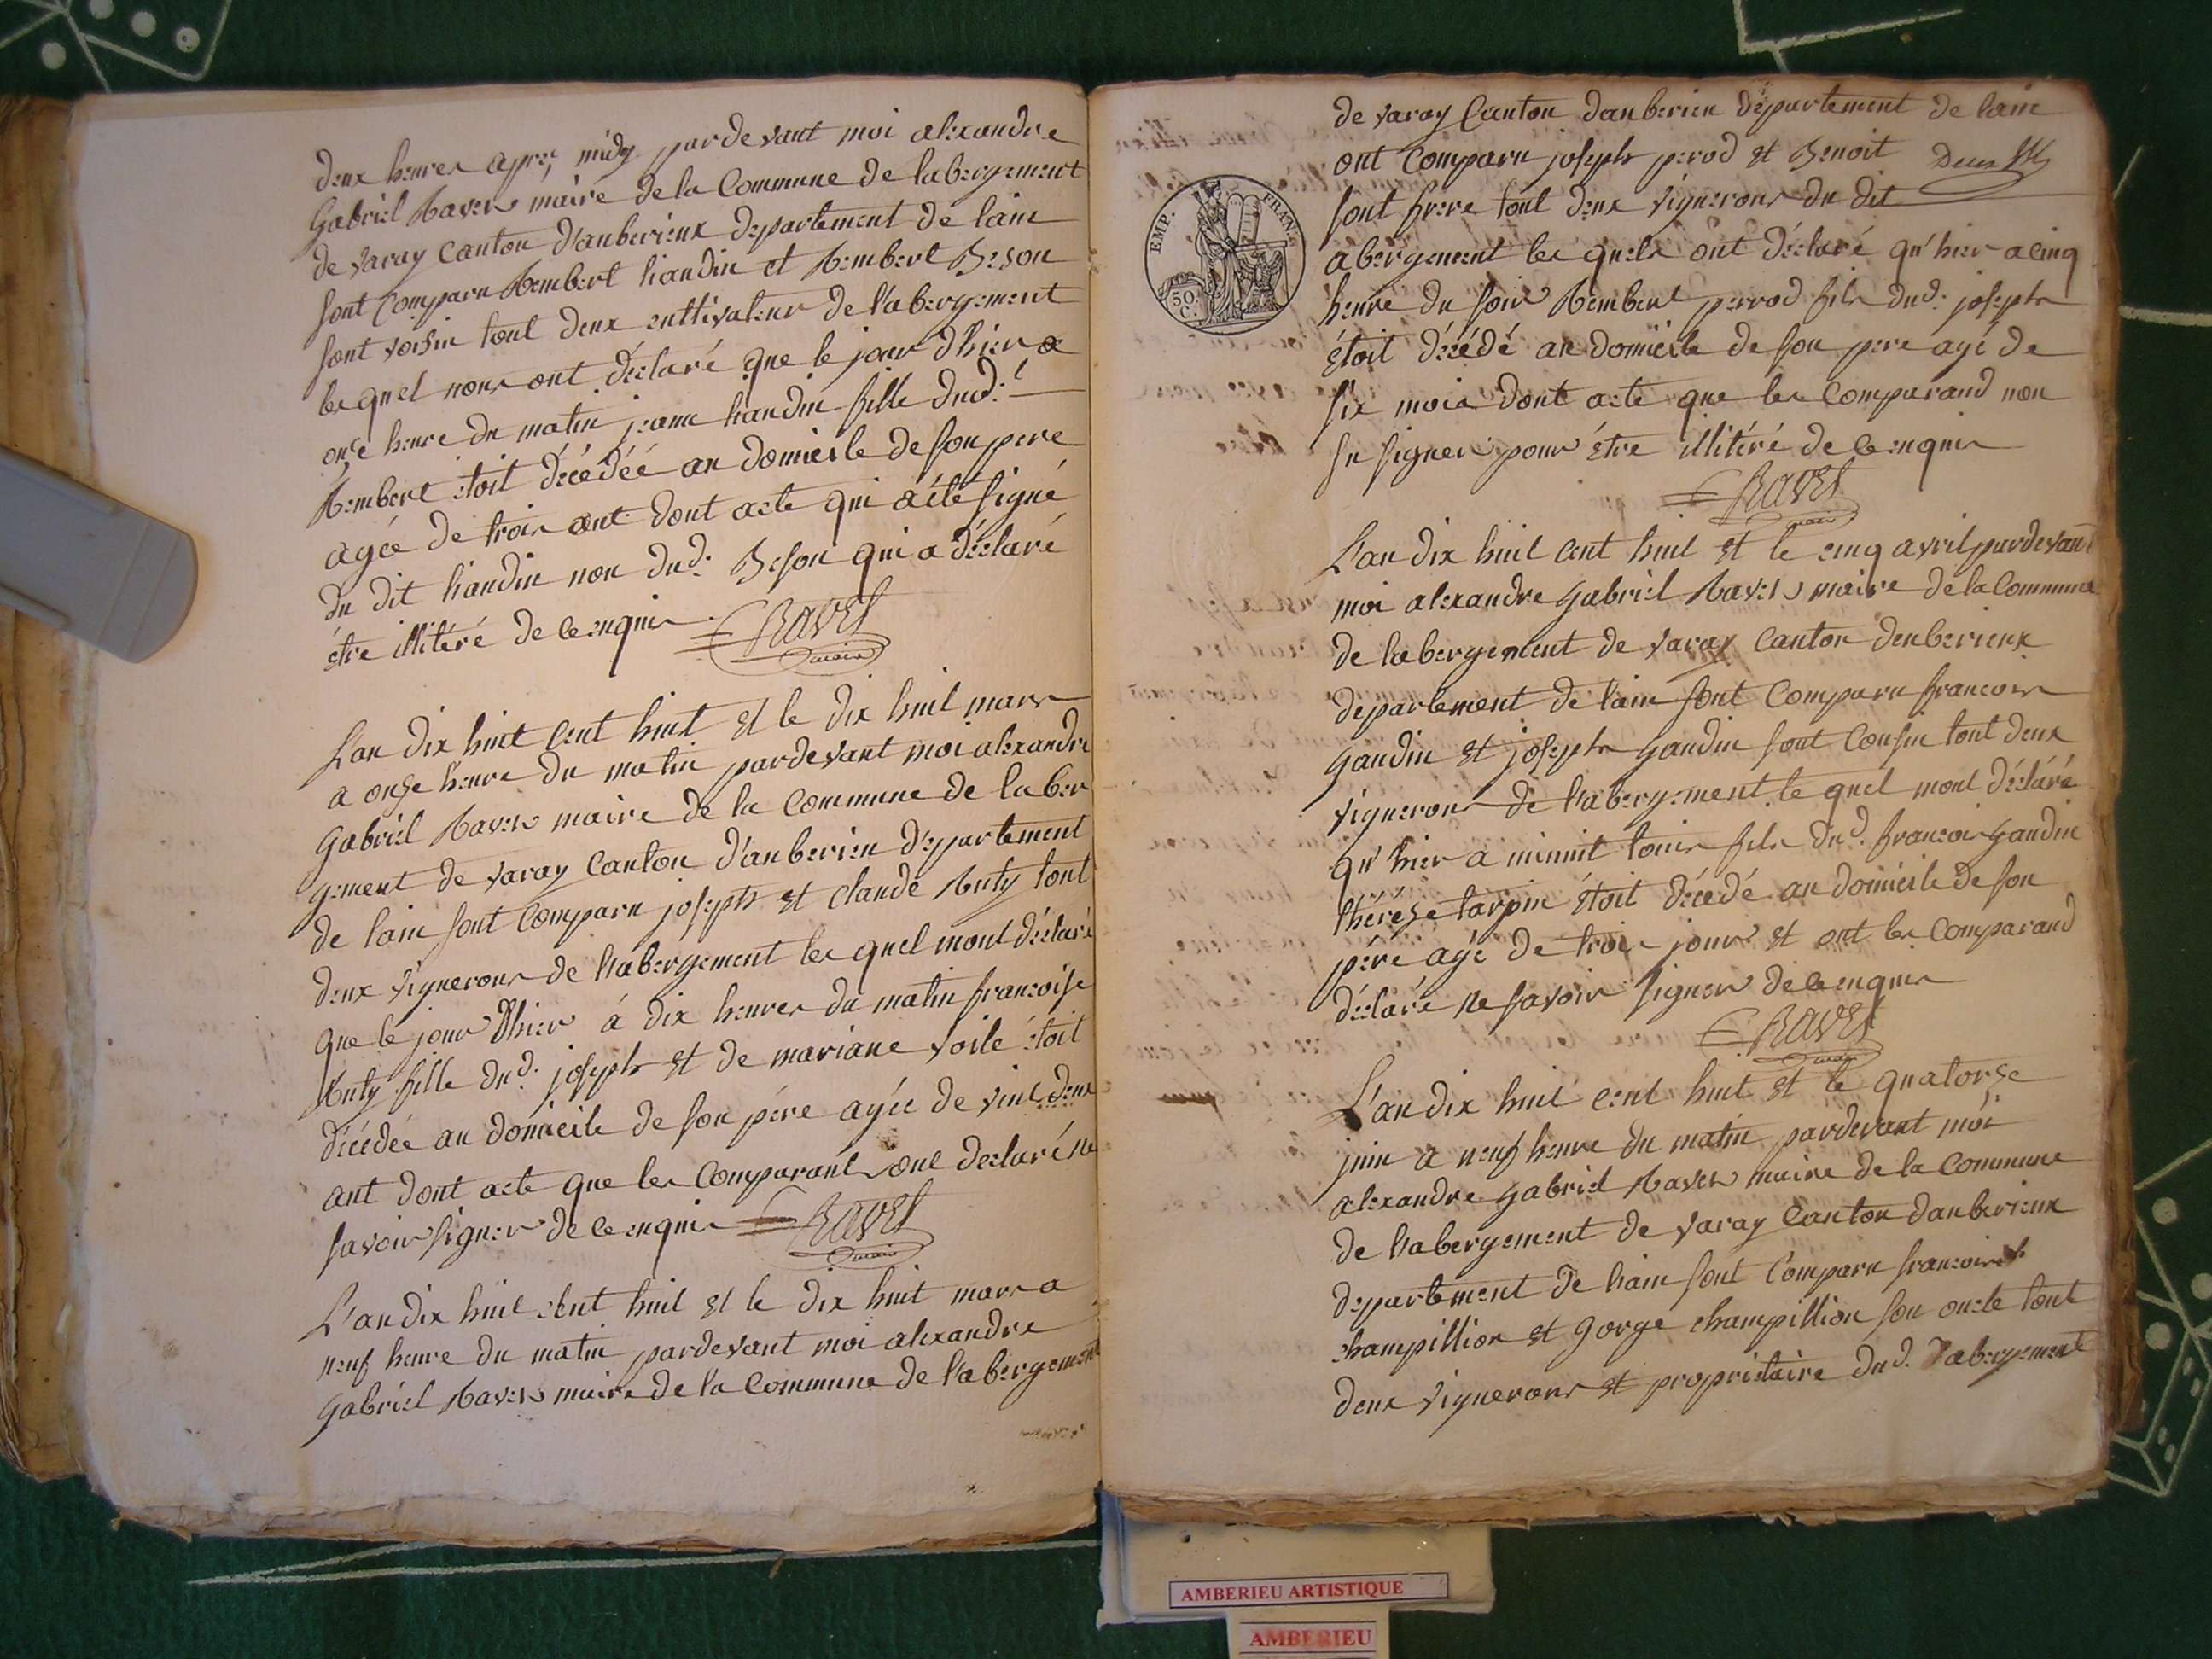 deux heures apres midy pardevant moi alexandre
Gabriel Ravet maire de la Commune de labergement
de varay canton d'anberieux departement de lain
sont comparu Rembert liaudin et Rembert Beson
sont voisin tout deux cultivateur de l'abergement
lesquel nous ont déclaré que le jour d'hier a
onse heure du matin jeanne liaudin fille dud.t
Rembert étoit décédée au domicile de son pere
agée de trois ant dont acte qui a été signé
du dit liaudin non dud. Beson qui a déclaré
être illitéré de ce enquis
RAVET
maire
L'an dix huit cent huit et le dix huit mars
a onse heure du matin pardevant moi alexandre
Gabriel Ravet maire de la commune de laber
gement de varay canton d'anberieu departement
de lain sont comparu joseph et claude Ruty tout
deux vignerons de l'abergement les quel mont déclaré
que le jour d'hier à dix heures du matin francoise
Ruty fille dud. joseph et de mariane voile étoit
décédée au domicile de son pére agée de vint deux
ant dont acte que les comparant ont declaré ne
savoir signer de ce enquis
RAVET
maire
L'an dix huit cent huit et le dix huit mars a
neuf heure du matin pardevant moi alexandre
Gabriel Ravet maire de la commune de l'abergement
de varay Canton danberieu departement de lain
ont comparu joseph perod et Benoit
sont frere tout deux vignerons du dit
abergement les quels ont déclaré qu'hier a cinq
heure du soir Rembert perrod fils dud. joseph
étoit décédé au domicile de son pere agé de
six mois dont acte que les comparand non
su signer pour être illitéré de ce enquis
RAVET
maire
EMP. FRAN.
50 C.
L'an dix huit cent huit et le cinq avril pardevant
moi alexandre Gabriel Ravet maire de la commune
de labergement de varay canton denberieux
departement de lain sont comparu francois
gaudin et joseph gaudin sont cousin tout deux
vignerons de l'abergement le quel mont déclaré
qu'hier a minuit louis fils dud. francois gaudin
thérése tarpin étoit décédé au domicile de son
pére agé de trois jours et ont les comparand
déclaré ne savoir signer de ce enquis
RAVET
maire
L'an dix huit cent huit et le quatorse
juin a neuf heure du matin pardevant moi
alexandre Gabriel Ravet maire de la commune
de l'abergement de varay canton danberieux
departement de l'ain sont comparu francois
champillion et gorge champillion son oncle tout
deux vignerons et propriétaire dud. l'abergement
AMBERIEU ARTISTIQUE
AMBERIEU